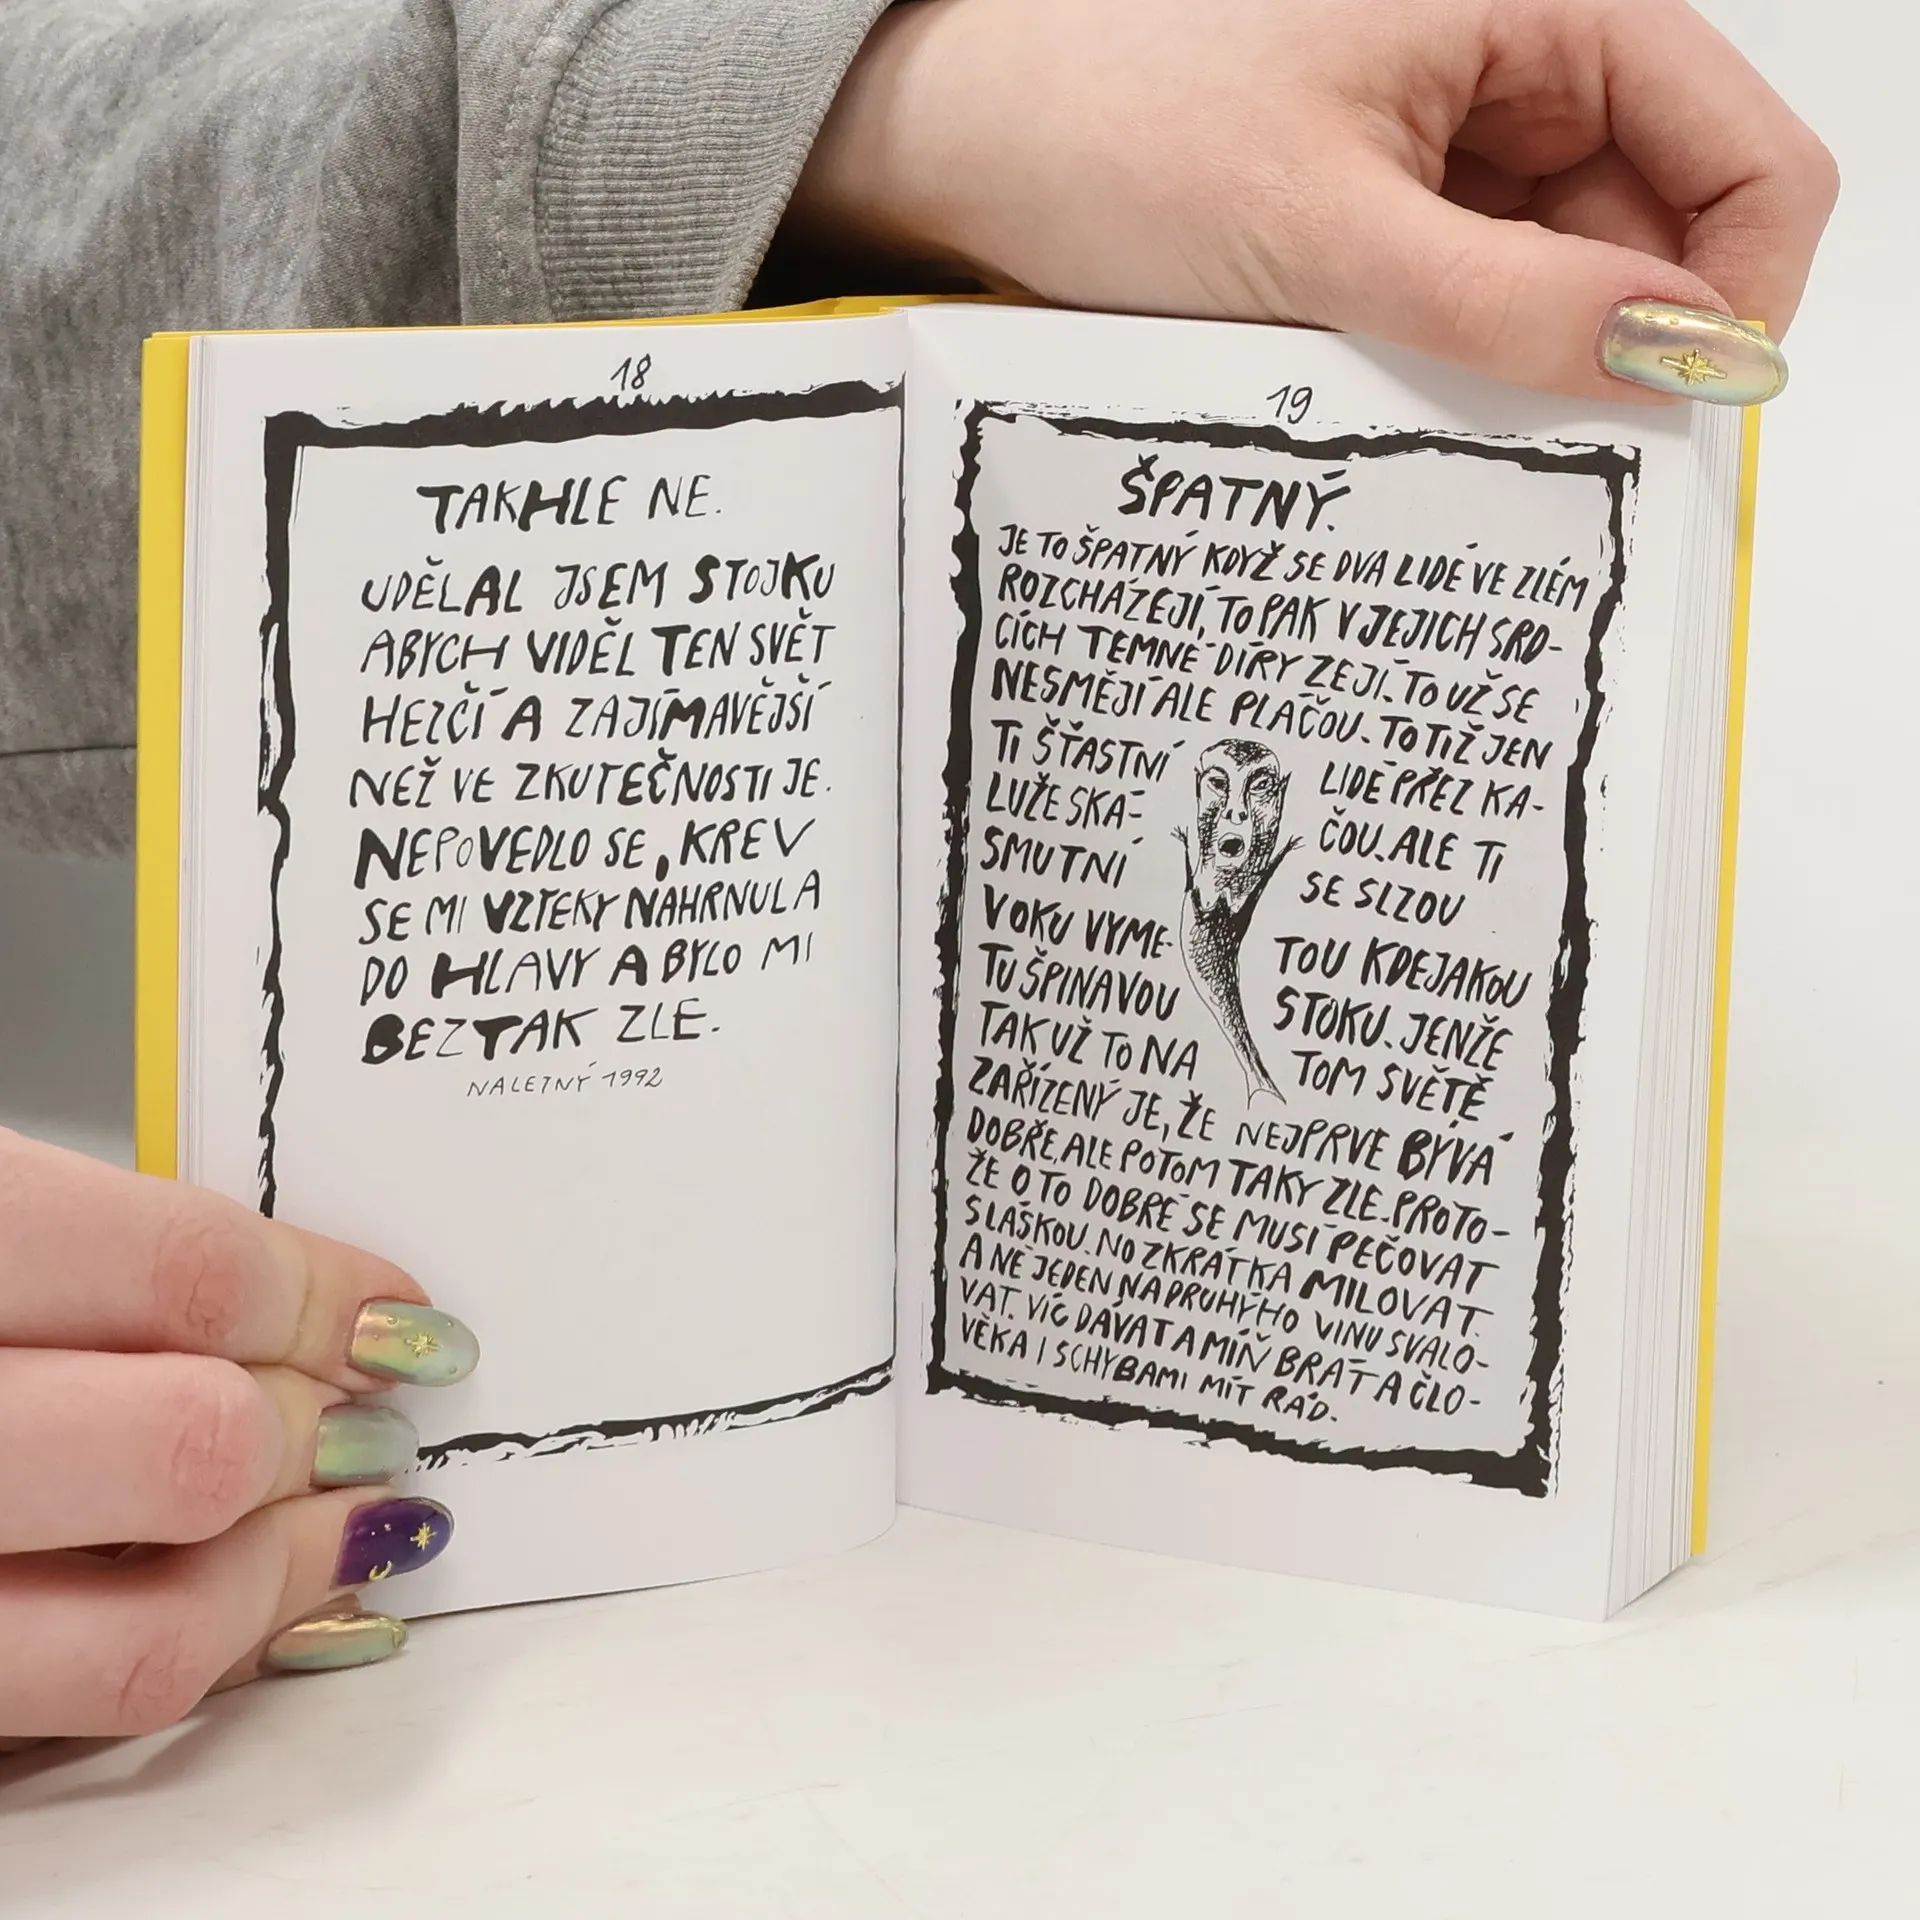 18
TAKHLE NE.
UDĚLAL JSEM STOJKU
ABYCH VIDĚL TEN SVĚT
HEZČÍ A ZAJÍMAVĚJŠÍ
NEŽ VE ZKUTEČNOSTI JE.
NEPOVEDLO SE, KREV
SE MI VZTEKY NAHRNULA
DO HLAVY A BYLO MI
BEZTAK ZLE.
NALETNÝ 1992
19
ŠPATNÝ.
JE TO ŠPATNÝ KDYŽ SE DVA LIDÉ VE ZLÉM
ROZCHÁZEJÍ, TO PAK V JEJICH SRD-
CÍCH TEMNÉ DÍRY ZEJÍ. TO UŽ SE
NESMĚJÍ ALE PLÁČOU. TOTIŽ JEN
TI ŠŤASTNÍ LIDÉ PŘEZ KA-
LUŽE SKÁ- ČOU. ALE TI
SMUTNÍ SE SLZOU
V OKU VYME- TOU KDEJAKOU
TU ŠPINAVOU STOKU. JENŽE
TAK UŽ TO NA TOM SVĚTĚ
ZAŘÍZENÝ JE, ŽE NEJPRVE BÝVÁ
DOBŘE, ALE POTOM TAKY ZLE. PROTO-
ŽE O TO DOBRÉ SE MUSÍ PEČOVAT
S LÁSKOU. NO ZKRÁTKA MILOVAT.
A NE JEDEN NA DRUHÝHO VINU SVALO-
VAT. VÍC DÁVAT A MÍŇ BRÁT A ČLO-
VĚKA I S CHYBAMI MÍT RÁD.